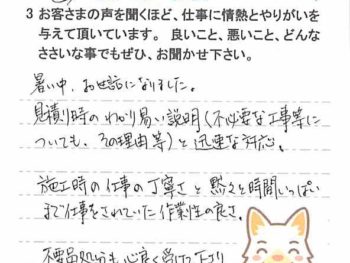 3 お客さまの声を聞くほど、仕事に情熱とやりがいを
与えて頂いています。 良いこと、悪いこと、どんな
ささいな事でもぜひ、お聞かせ下さい。
暑い中、お世話になりました。
見積り時のわかり易い説明(不必要な工事等に
ついても、その理由等)と迅速な対応。
施工時の仕事の丁寧さと黙々と時間いっぱい
まで仕事をされていた作業性の良さ。
不要品処分も心良く受けて下さり